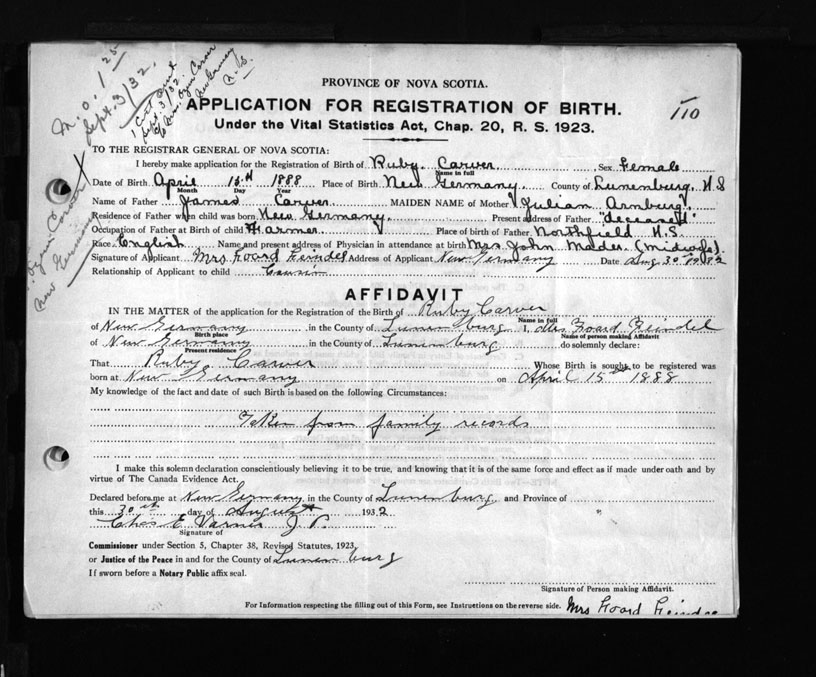 M.O. 1 25
Sept. 3/32.
1 Cert
Sept. 3/32.
Ozen Carver
New Germany
N.S.
110
PROVINCE OF NOVA SCOTIA.
APPLICATION FOR REGISTRATION OF BIRTH.
Under the Vital Statistics Act, Chap. 20, R. S. 1923.
TO THE REGISTRAR GENERAL OF NOVA SCOTIA:
I hereby make application for the Registration of Birth of Ruby Carver Sex Female
Name in full
Date of Birth April 15th 1888 Place of Birth New Germany County of Lunenburg, N.S
Month Day Year
Name of Father James Carver MAIDEN NAME of Mother Julian Arnburg
Residence of Father when child was born New Germany Present address of Father "deceased"
Occupation of Father at Birth of child Farmer Place of birth of Father Northfield N.S.
Race English Name and present address of Physician in attendance at birth Mrs John Mader (Midwife).
Signature of Applicant Mrs Foard Feindel Address of Applicant New Germany Date Aug 30th 1932
Relationship of Applicant to child Cousin
Ozen Carver
New Germany
AFFIDAVIT
IN THE MATTER of the application for the Registration of the Birth of Ruby Carver
Name in full
of New Germany in the County of Lunenburg I, Mrs Foard Feindel
Birth place Name of person making Affidavit
of New Germany in the County of Lunenburg do solemnly declare:
Present residence
That Ruby Carver Whose Birth is sought to be registered was
born at New Germany on April 15th 1888
My knowledge of the fact and date of such Birth is based on the following Circumstances:
Taken from family records
I make this solemn declaration conscientiously believing it to be true, and knowing that it is of the same force and effect as if made under oath and by
virtue of The Canada Evidence Act.
Declared before me at New Germany in the County of Lunenburg and Province of
this 30th day of August 1932 "
Chas E Varner J P.
Signature of
Commissioner under Section 5, Chapter 38, Revised Statutes, 1923,
or Justice of the Peace in and for the County of Lunenburg
If sworn before a Notary Public affix seal.
Signature of Person making Affidavit.
For Information respecting the filling out of this Form, see Instructions on the reverse side. Mrs Foard Feindel